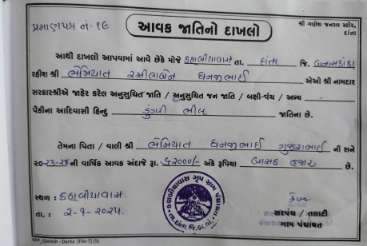 પ્રમાણપત્ર નં-૧૯
આવક જાતિનો દાખલો
શ્રી ગણેશ જનરલ સ્ટોર,
દાંતા
આથી દાખલો આપવામાં આવે છેકે મોજે કણબીયાવાસ તા. દાંતા જિ. બનાસકાંઠા
રહીશ શ્રી ભેમિયાત રમીલાબેન ધનજીભાઈ એઓ શ્રી નામદાર
સરકારશ્રીએ જાહેર કરેલ અનુસુચિત જાતિ / અનુસુચિત જન જાતિ / બક્ષી-પંચ / અન્ય
પૈકીના આદિવાસી હિન્દુ ડુંગરી ભીલ જાતિના છે.
તેમના પિતા / વાલી શ્રી ભેમિયાત ધનજીભાઈ ગુજરાભાઈ ની સને
૨૦૨૩-૨૪ની વાર્ષિક આવક અંદાજે રૂા. ૬૨૦૦૦/- અંકે રૂપિયા બાસઠ હજાર છે.
સ્થળ : કણબીયાવાસ
તા. : ૨-૧-૨૦૨૫
સરપંચ / તલાટી
ગ્રામ પંચાયત